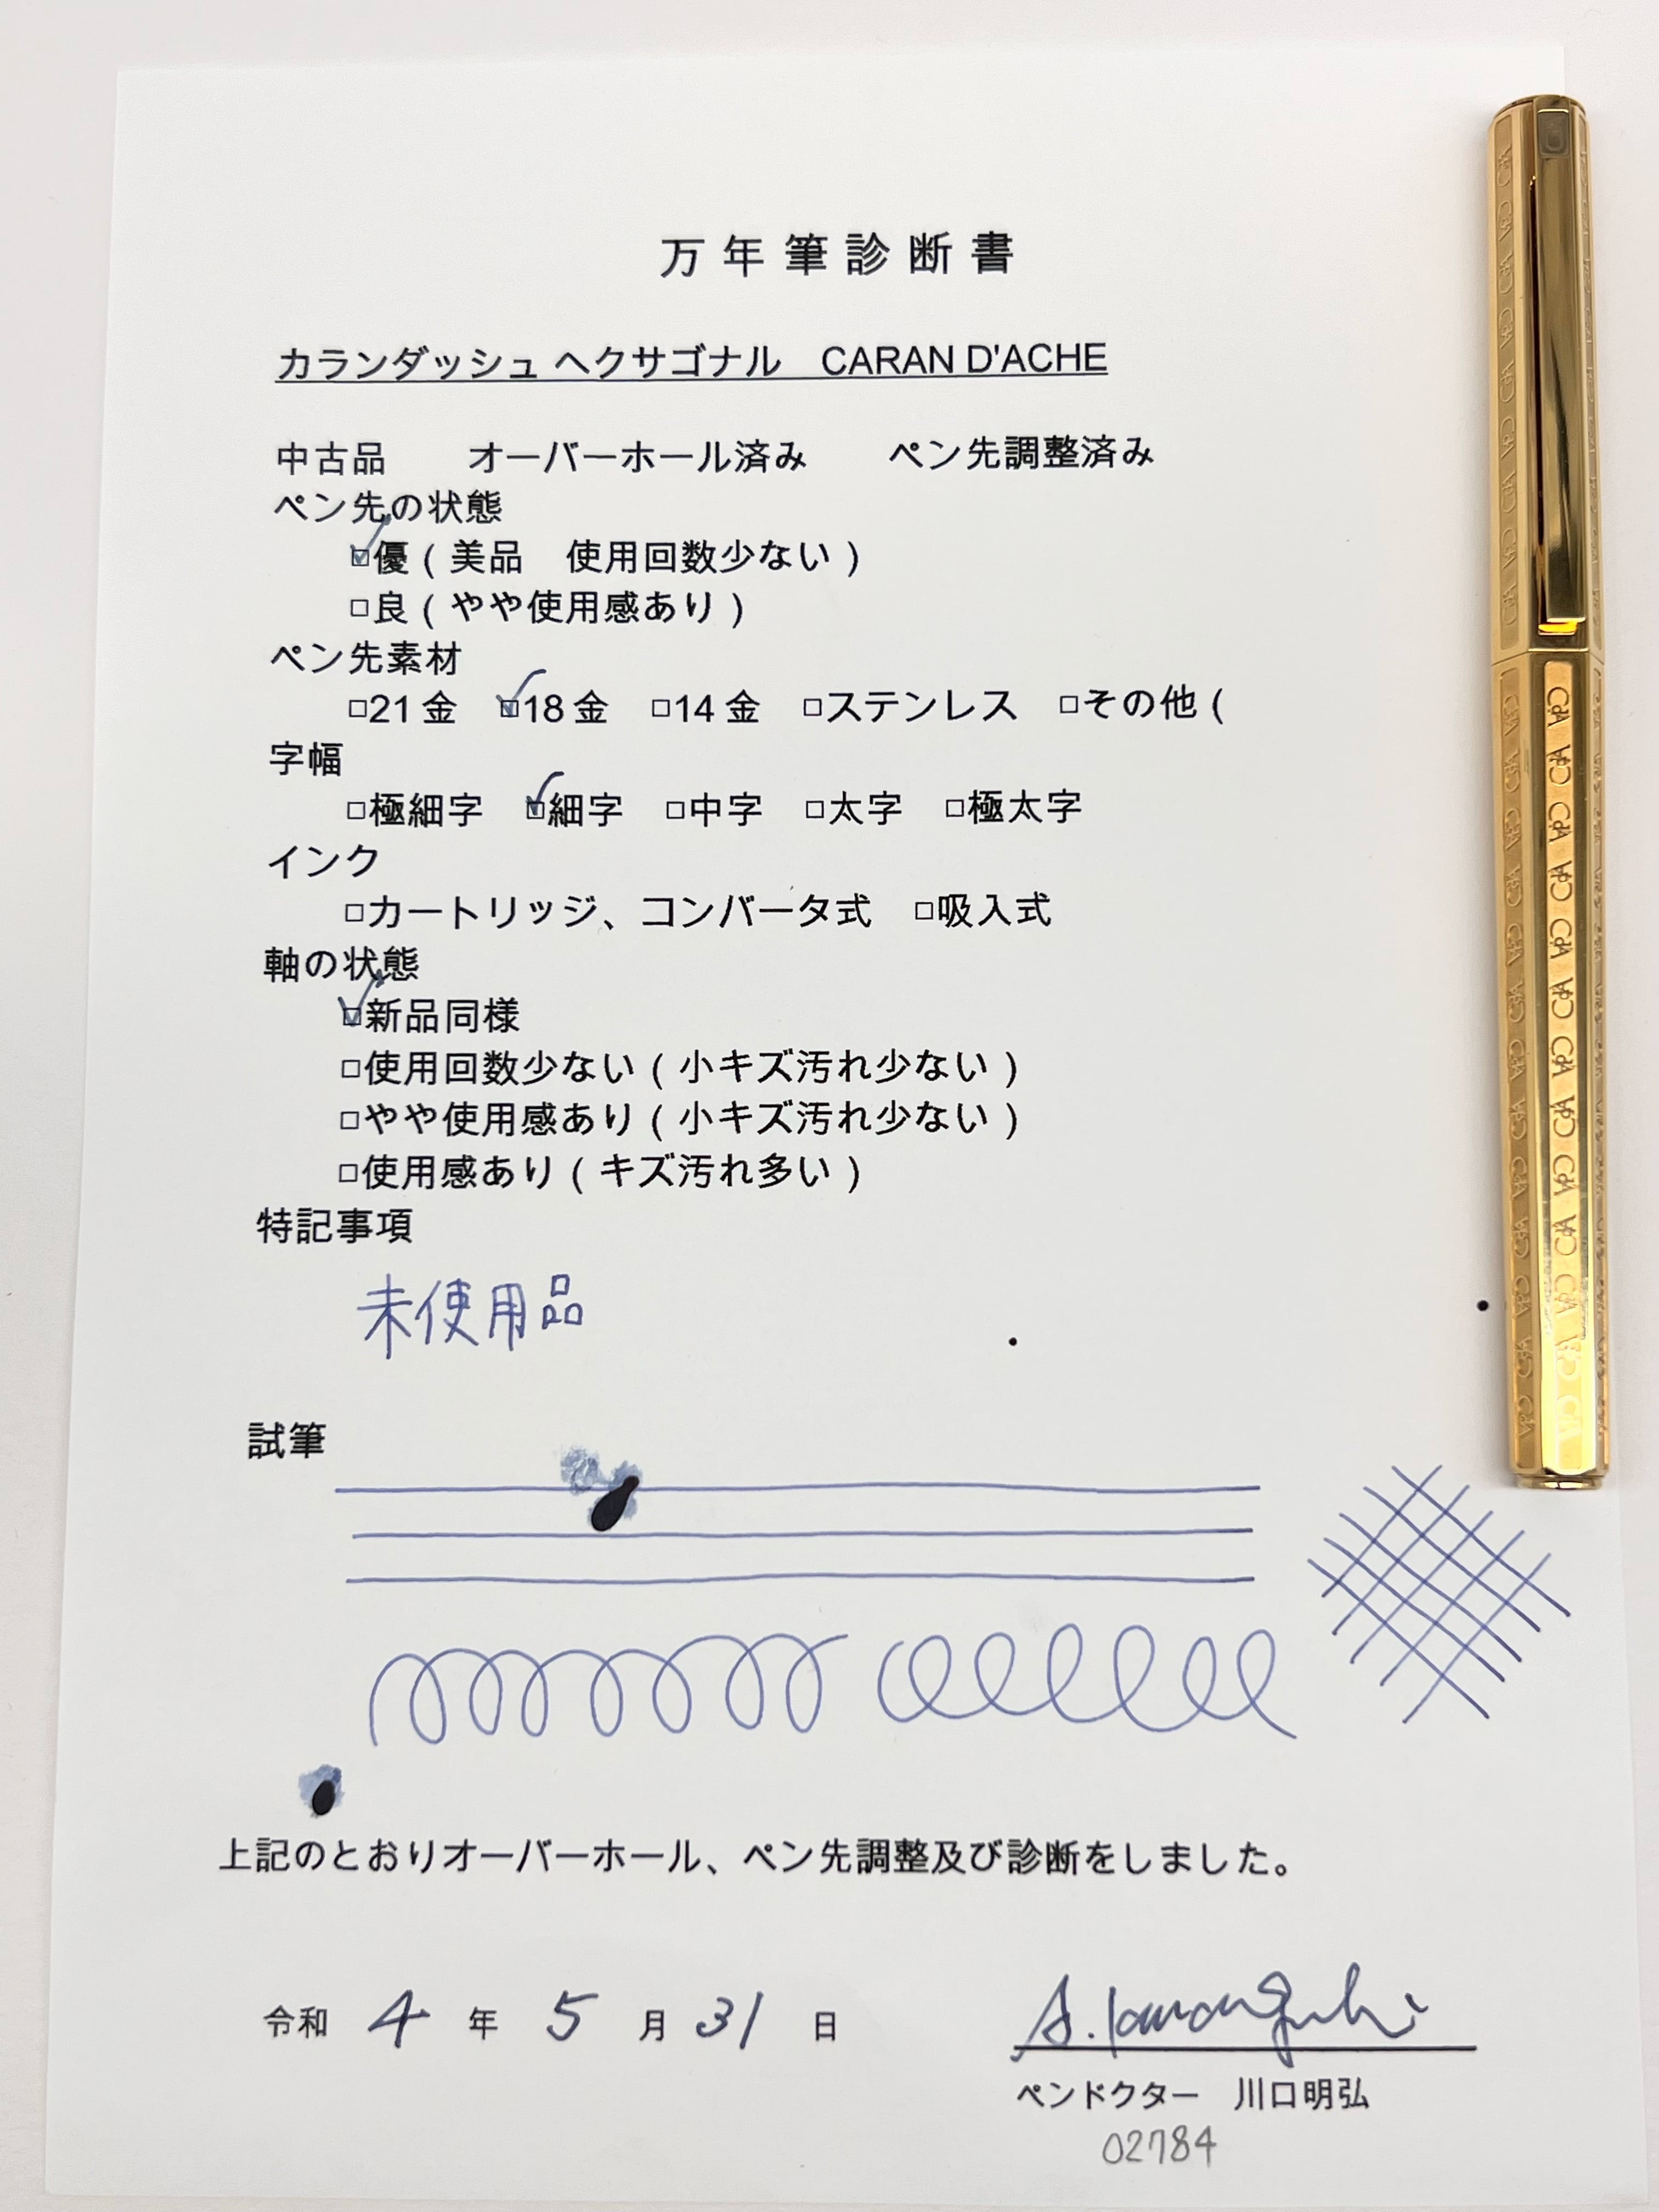 万年筆診断書
カランダッシュ ヘクサゴナル　CARAN D'ACHE
中古品　オーバーホール済み　ペン先調整済み
ペン先の状態
☑優（美品　使用回数少ない）
□良（やや使用感あり）
ペン先素材
□21金　☑18金　□14金　□ステンレス　□その他（
字幅
□極細字　☑細字　□中字　□太字　□極太字
インク
□カートリッジ、コンバータ式　□吸入式
軸の状態
☑新品同様
□使用回数少ない（小キズ汚れ少ない）
□やや使用感あり（小キズ汚れ少ない）
□使用感あり（キズ汚れ多い）
特記事項
未使用品
試筆
上記のとおりオーバーホール、ペン先調整及び診断をしました。
令和 4 年 5 月 31 日
A. Kawaguchi
ペンドクター　川口明弘
02784